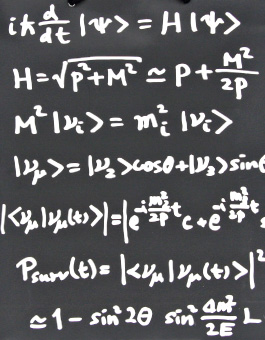 iℏ d/dt |ψ> = H |ψ>
H = √p²+M² ≃ P + M²/2p
M² |νᵢ> = mᵢ² |νᵢ>
|ν_μ> = |ν₂>cosθ + |ν₃>sinθ
|<ν_μ|ν_μ(t)>| = |e^{-i m₂²/2p t} c + e^{-i m₃²/2p t} s
P_surv(t) = |<ν_μ|ν_μ(t)>|²
≃ 1 - sin²2θ sin² Δm²/2E L